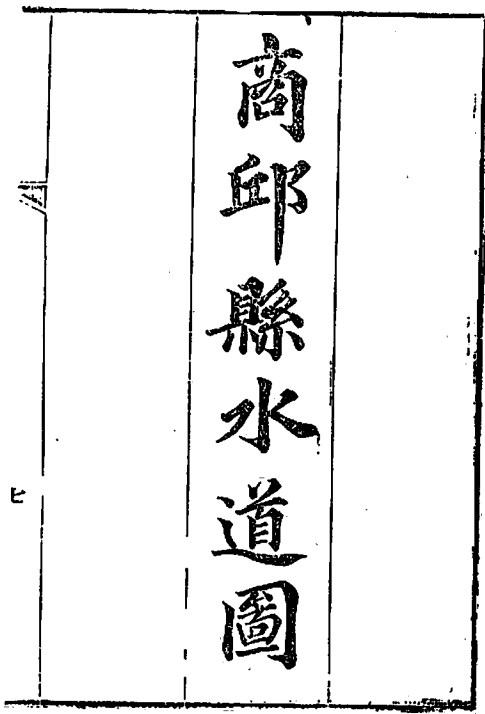 商邱縣水道圖